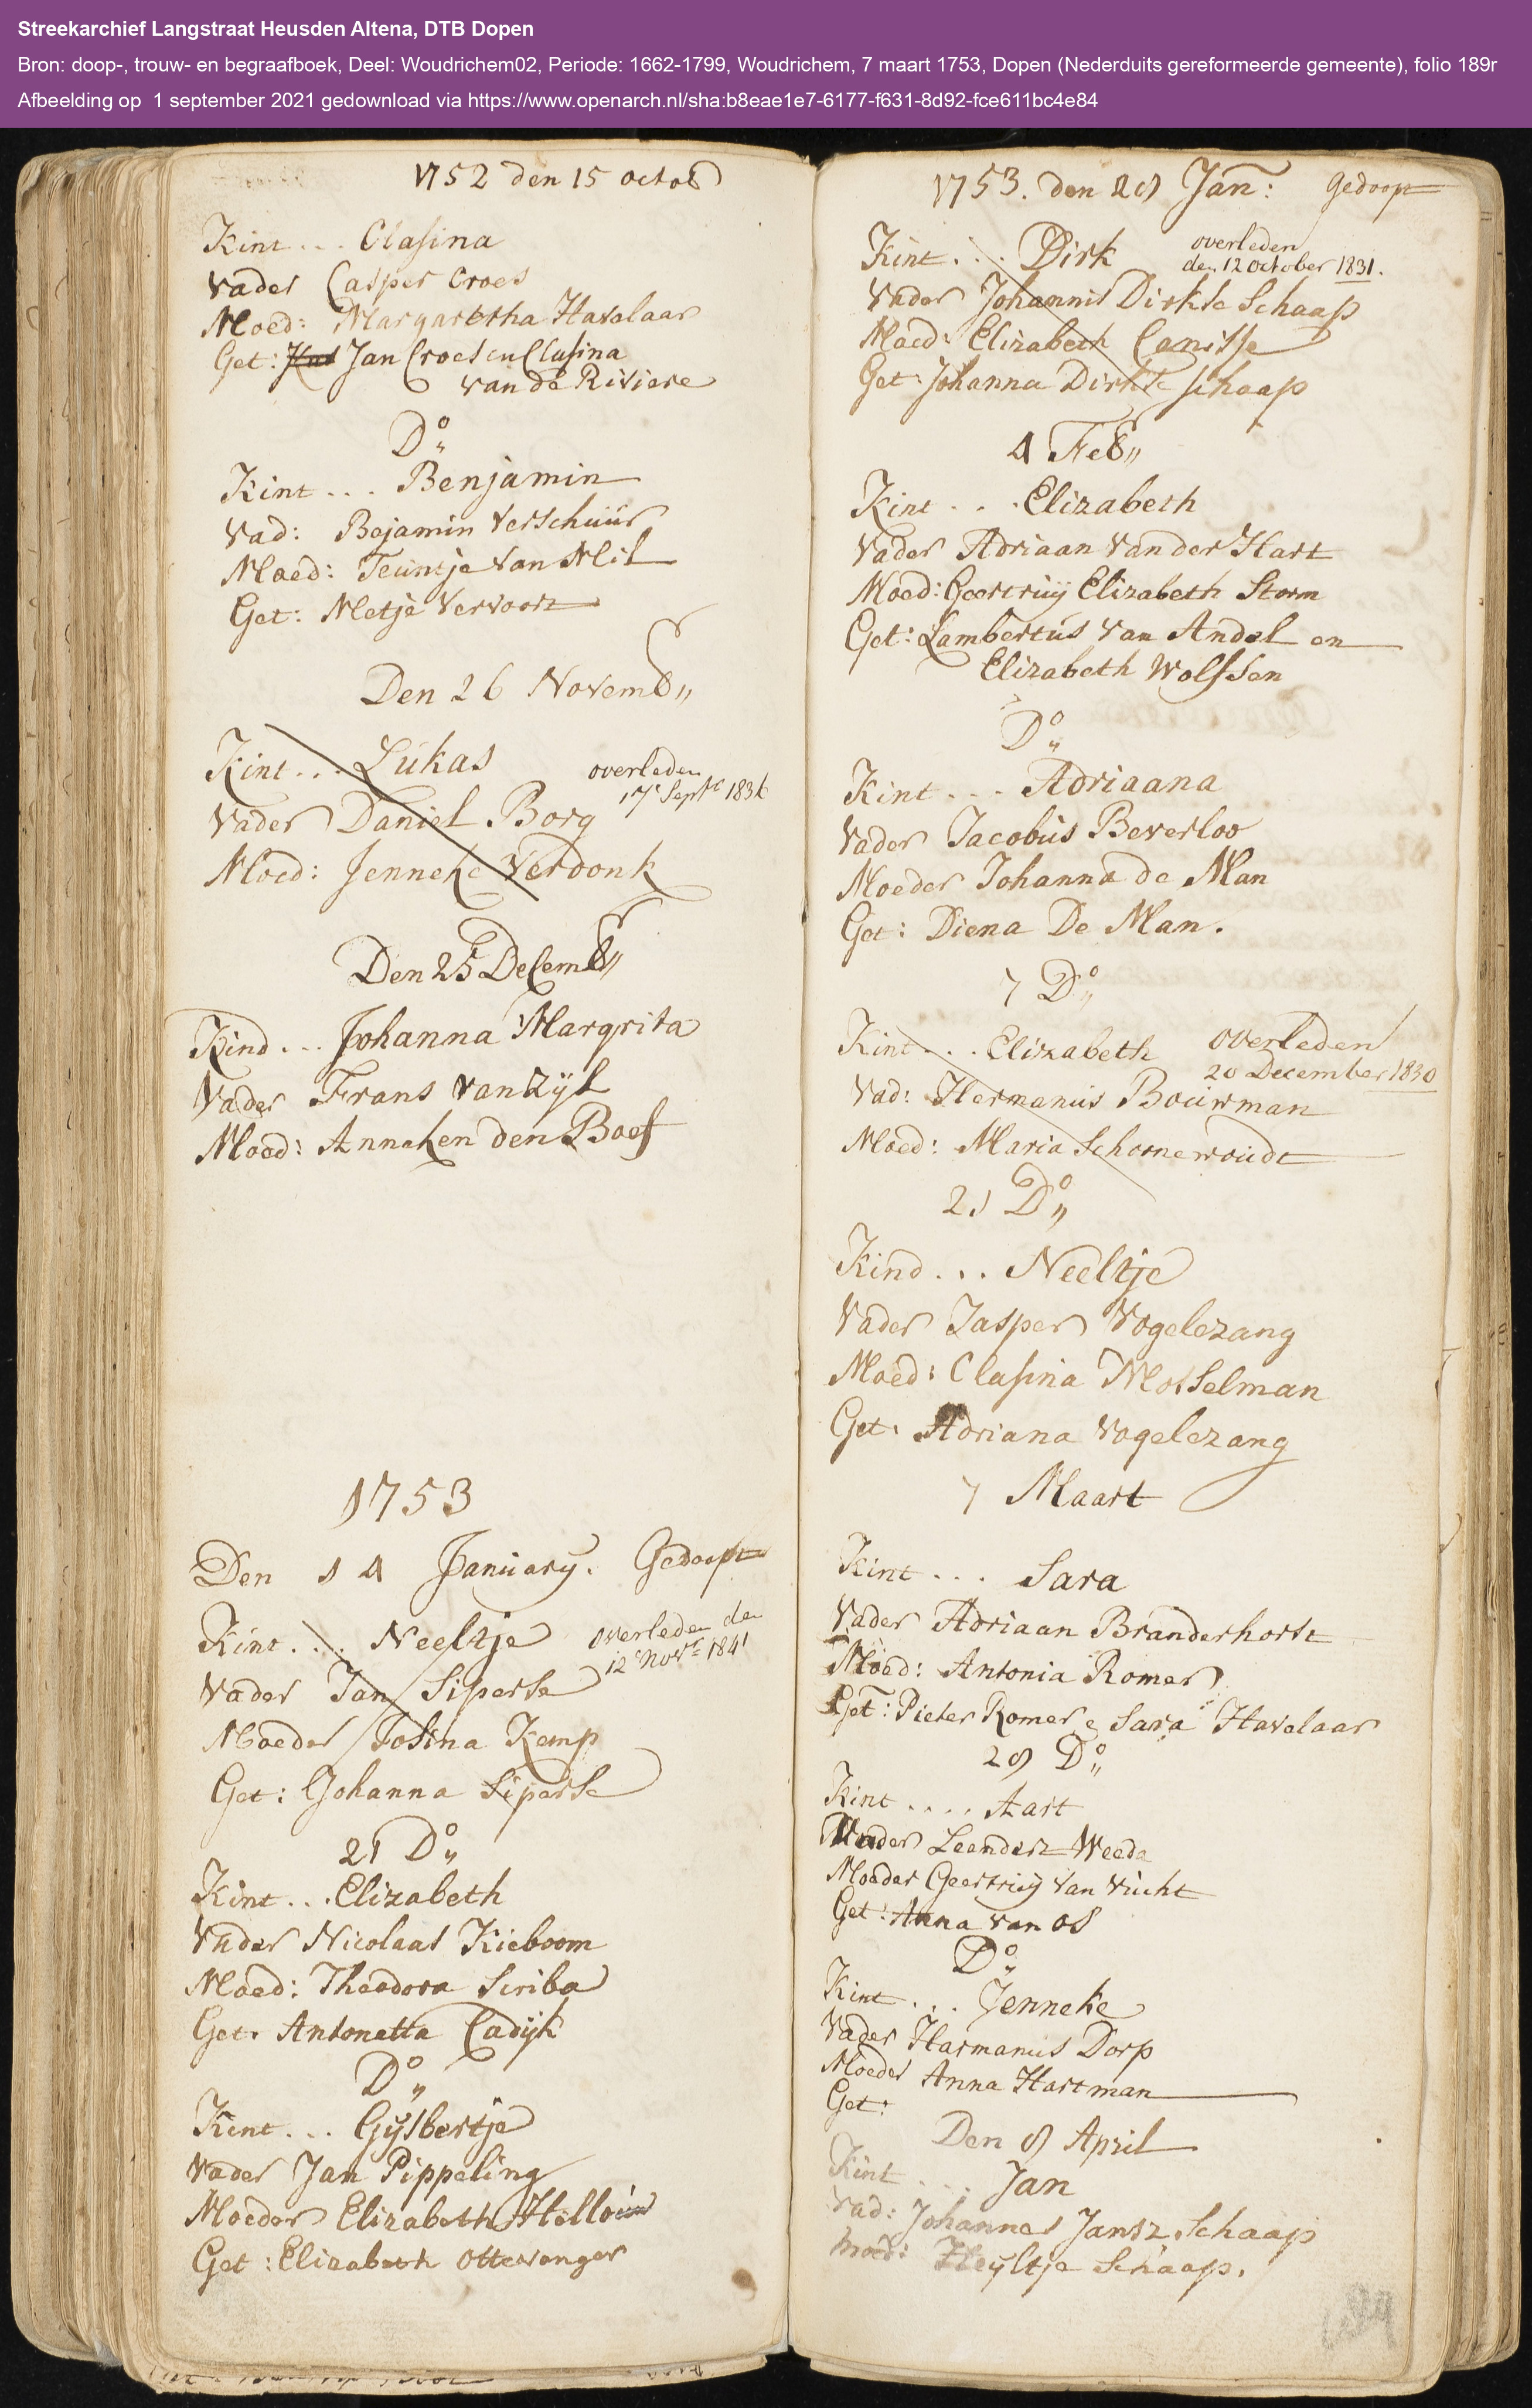 Streekarchief Langstraat Heusden Altena, DTB Dopen
Bron: doop-, trouw- en begraafboek, Deel: Woudrichem02, Periode: 1662-1799, Woudrichem, 7 maart 1753, Dopen (Nederduits gereformeerde gemeente), folio 189r
Afbeelding op 1 september 2021 gedownload via https://www.openarch.nl/sha:b8eae1e7-6177-f631-8d92-fce611bc4e84
1752 den 15 octob
Kint ... Clasina
Vader Casper Croes
Moed: Margaretha Havelaar
Get: Jan Croes en Clasina
van de Riviere
Do
Kint ... Benjamin
Vad: Bejamin Verschuur
Moed: Teuntje Van Mil
Get: Metje Vervoort
Den 26 Novemb
Kint ... Lukas
overleden
17e Septr
Vader Daniel Borg
Moed: Jenneke Verdonk
Den 25 Decemb
Kind ... Johanna Margrita
Vader Frans van Zijl
Moed: Anneken den Boef
1753
Den 14 January. Gedoopt
Kint ... Neeltje
overleden den
12e Novr 1841
Vader Jan Siperse
Moeder Josina Kemp
Get: Johanna Siperse
21 Do
Kint ... Elizabeth
Vader Nicolaas Kieboom
Moed: Theodora Scriba
Get: Antonetta Cadijk
Do
Kint ... Gijsbertje
Vader Jan Pippeling
Moeder Elizabeth
Get: Elizabeth Ottevanger
1753. den 28 Jan: Gedoopt
Kint ... Dirk
overleden
den 12 october 1831.
Vader Johannis Dirkse Schaap
Moed: Elizabeth Canisse
Get: Johanna Dirkse schaap
4 Feb
Kint ... Elizabeth
Vader Adriaan Van der Hart
Moed: Geertruij Elizabeth Storm
Get: Lambertus Van Andel en
Elizabeth Wolfsen
Do
Kint ... Adriaana
Vader Jacobus Beverloo
Moeder Johanna de Man
Get: Diena De Man.
7 Do
Kint ... Elizabeth
overleden
20 December 1830
Vad: Hermanus Bouwman
Moed: Maria Schoonewoudt
21 Do
Kind ... Neeltje
Vader Jasper Vogelezang
Moed: Clasina Mosselman
Get: Adriana Vogelezang
7 Maart
Kint ... Sara
Vader Adriaan Branderhorst
Moed: Antonia Romer
Get: Pieter Romer e Sara Havelaar
28 Do
Kint .... Aart
Vader Leendert Weeda
Moeder Geertruij Van Vucht
Get: Anna van Os
Do
Kint ... Jenneke
Vader Harmanus Dorp
Moeder Anna Hartman
Get:
Den 8 April
Kint ... Jan
Vad: Johannes Jansz Schaap
Moed: Heyltje Schaap.